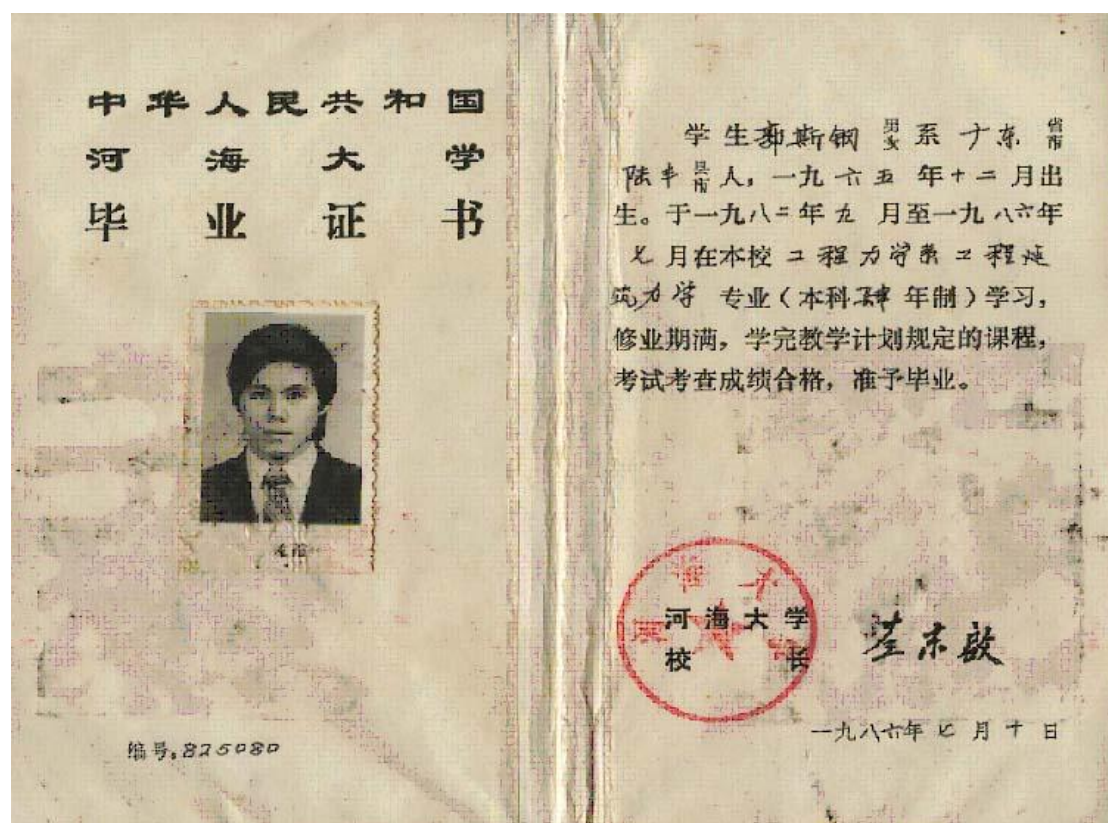 中华人民共和国
河海大学
毕业证书
编号:825080
学生郭斯钢 男女 系 广东 省市
陆丰 县市 人，一九六五年十二月出
生。于一九八二年九月至一九八六年
七月在本校工程力学系工程建
筑力学 专业（本科 年制）学习，
修业期满，学完教学计划规定的课程，
考试考查成绩合格，准予毕业。
河海大学
河海大学
校长
一九八六年七月十日